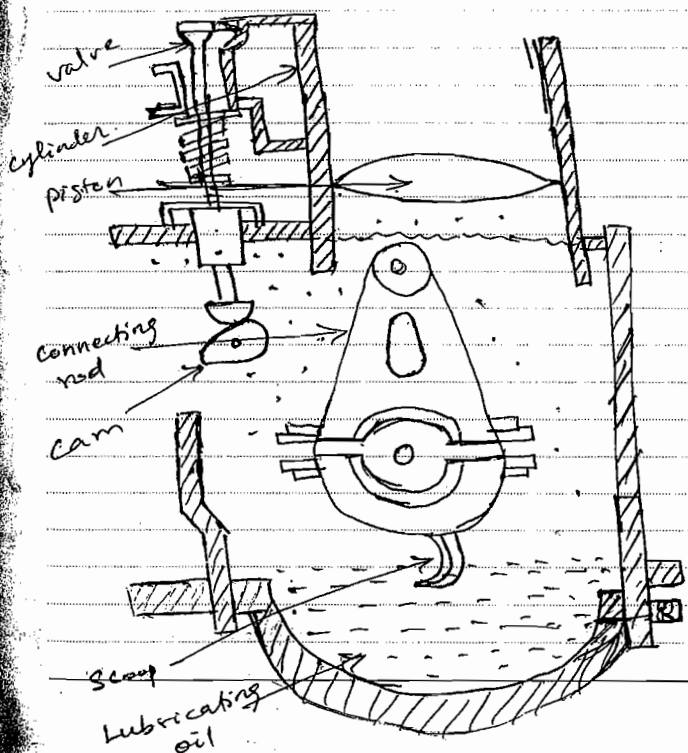 valve
cylinder.
piston
connecting
rod
cam
scoop
Lubricating
oil